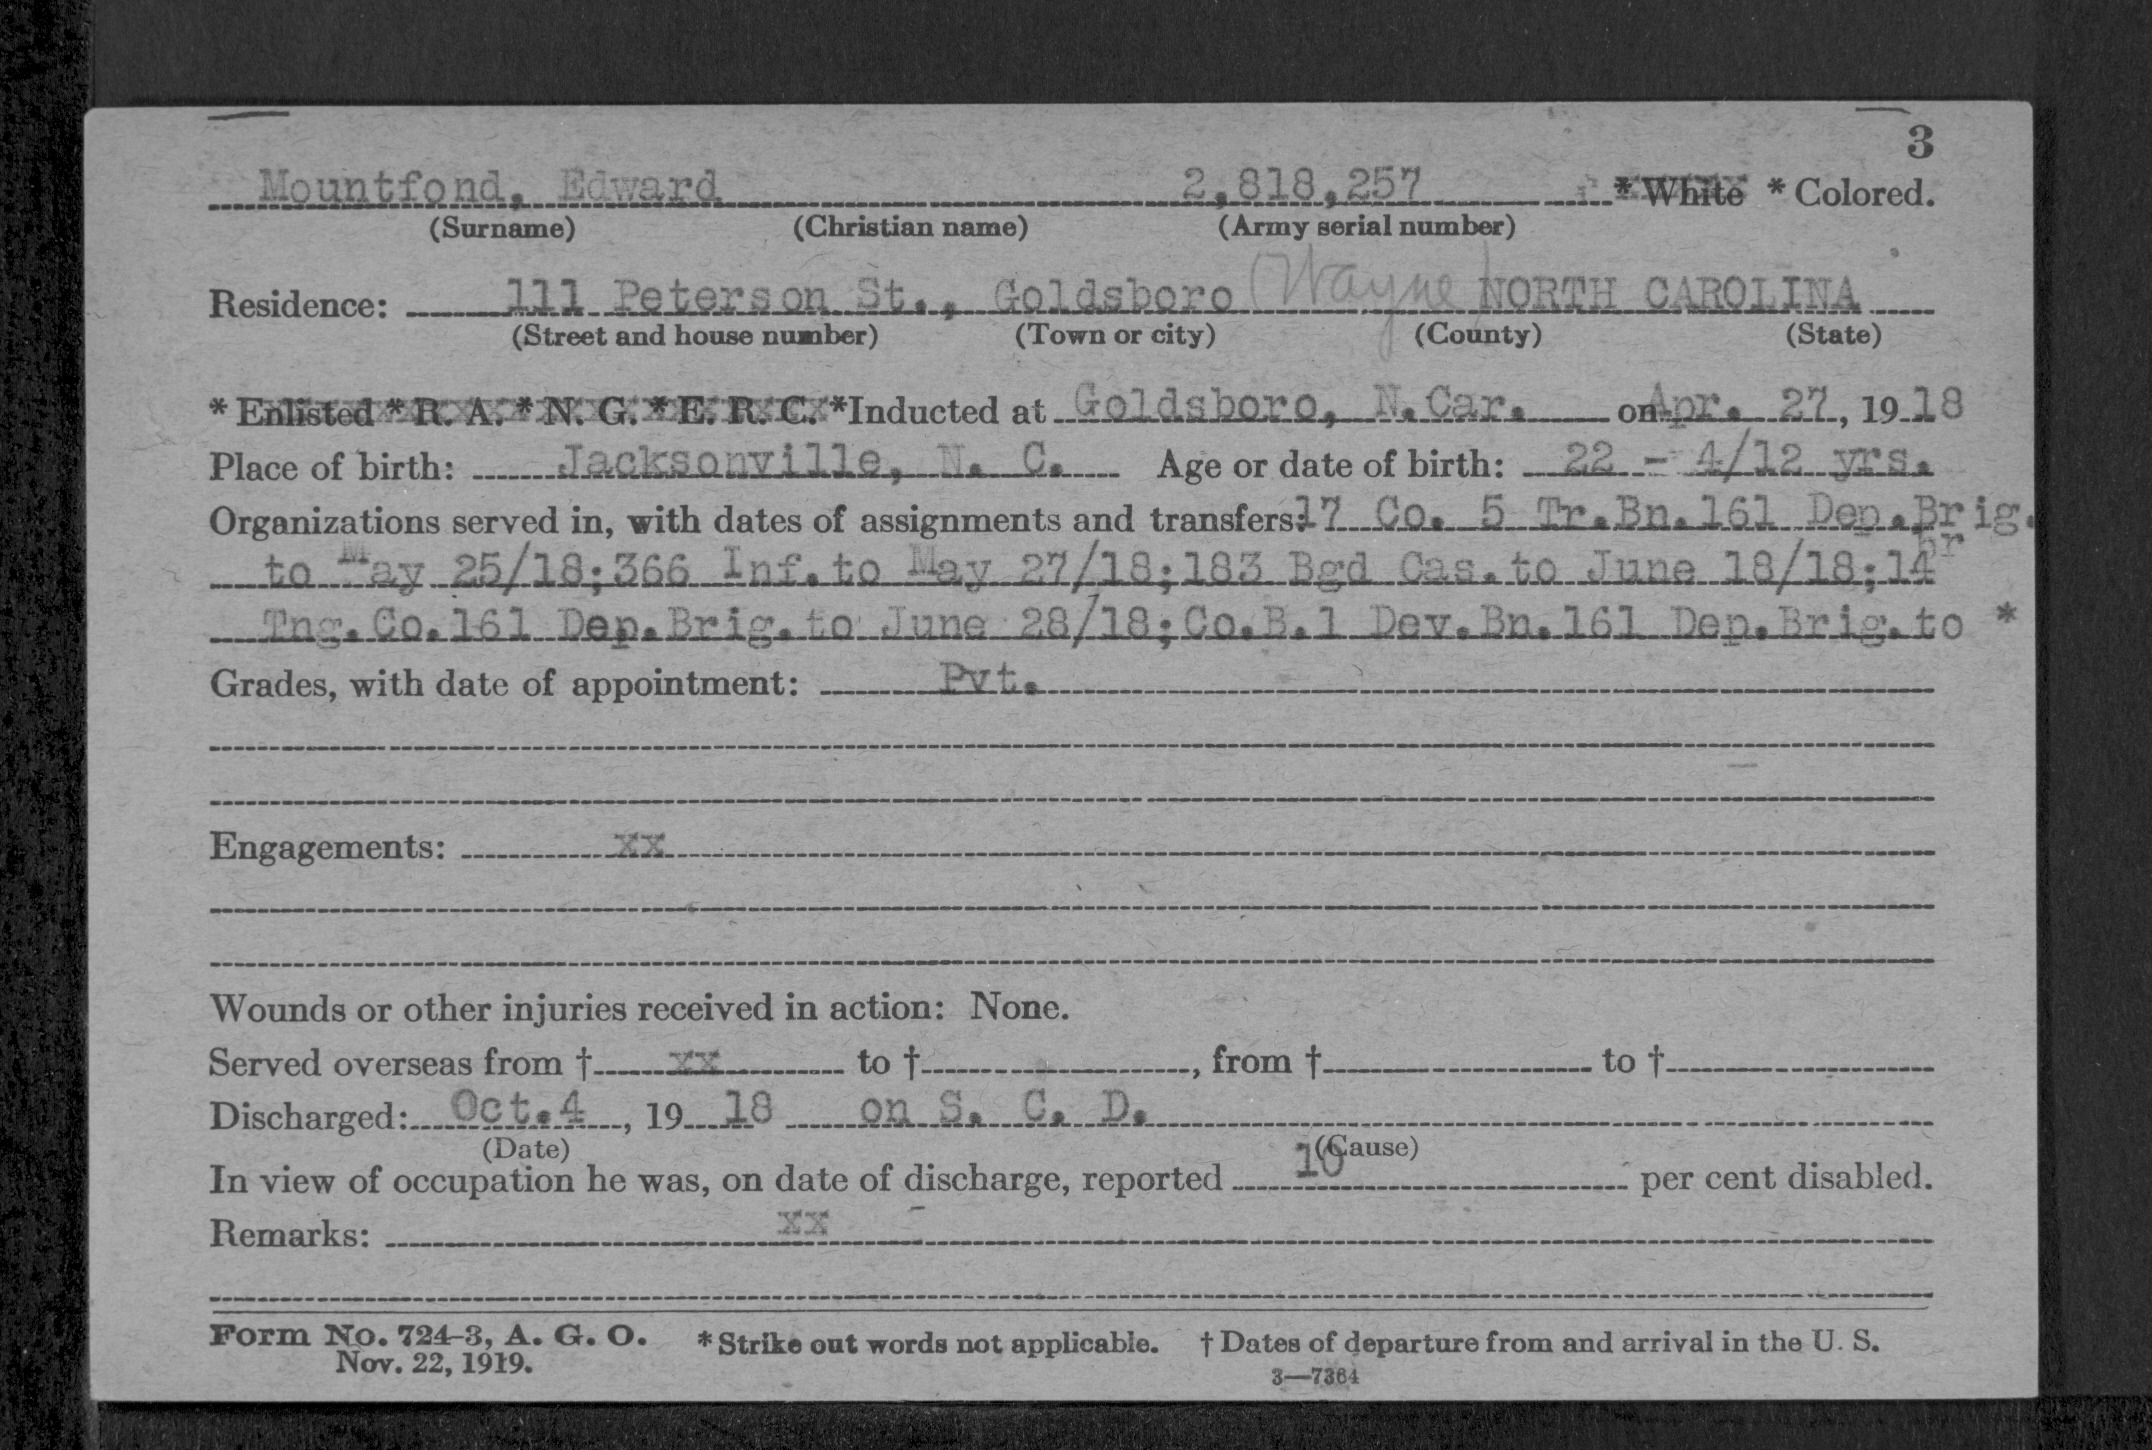 3
Mountfond, Edward 2,818,257 * White * Colored.
(Surname) (Christian name) (Army serial number)
Residence: 111 Peterson St., Goldsboro (Wayne) NORTH CAROLINA
(Street and house number) (Town or city) (County) (State)
* Enlisted * R. A. * N. G. * E. R. C. *Inducted at Goldsboro, N.Car. on Apr. 27, 19 18
Place of birth: Jacksonville, N. C. Age or date of birth: 22 - 4/12 yrs.
Organizations served in, with dates of assignments and transfers: 17 Co. 5 Tr.Bn.161 Dep.Brig.
to May 25/18;366 Inf.to May 27/18;183 Bgd Cas.to June 18/18;14 pr
Tng.Co.161 Dep.Brig.to June 28/18;Co.B.1 Dev.Bn.161 Dep.Brig.to *
Grades, with date of appointment: Pvt.
Engagements: xx
Wounds or other injuries received in action: None.
Served overseas from † xx to †, from † to †
Discharged: Oct.4, 19 18 on S. C. D.
(Date) (Cause)
In view of occupation he was, on date of discharge, reported 10 per cent disabled.
Remarks: xx
Form No. 724-3, A. G. O. * Strike out words not applicable. † Dates of departure from and arrival in the U. S.
Nov. 22, 1919. 3—7364